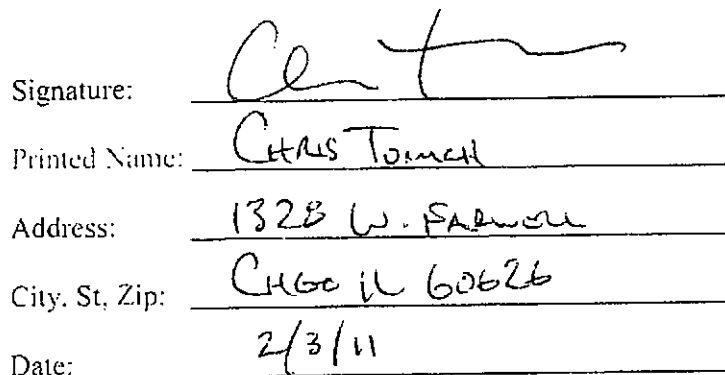 Signature:
Printed Name: CHRIS
Address: 1328 W. FARWELL
City, St, Zip: CHGO IL 60626
Date: 2/3/11